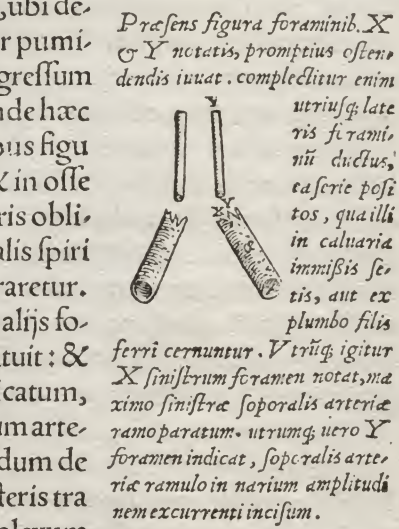 ,ubi de-
r pumi-
greſſum
nde hæc
ous figu
X in oſſe
ris obli-
alis ſpiri
raretur.
alijs fo-
tuit : &
icatum,
um arte-
dum de
ſteris tra
Præſens figura foraminib. X
& Y notatis, promptius oſten-
dendis iuuat. complectitur enim
utriuſq; late
ris forami-
nũ ductus,
ea ſerie poſi
tos, qua illi
in caluaria
immißis ſe-
tis, aut ex
plumbo filis
ferri cernuntur. Vtrũq; igitur
X ſiniſtrum foramen notat, ma
ximo ſiniſtræ ſoporalis arteriæ
ramo paratum. utrumq; uero Y
foramen indicat, ſoporalis arte-
riæ ramulo in narium amplitudi
nem excurrenti inciſum.
Y
Y
X
X